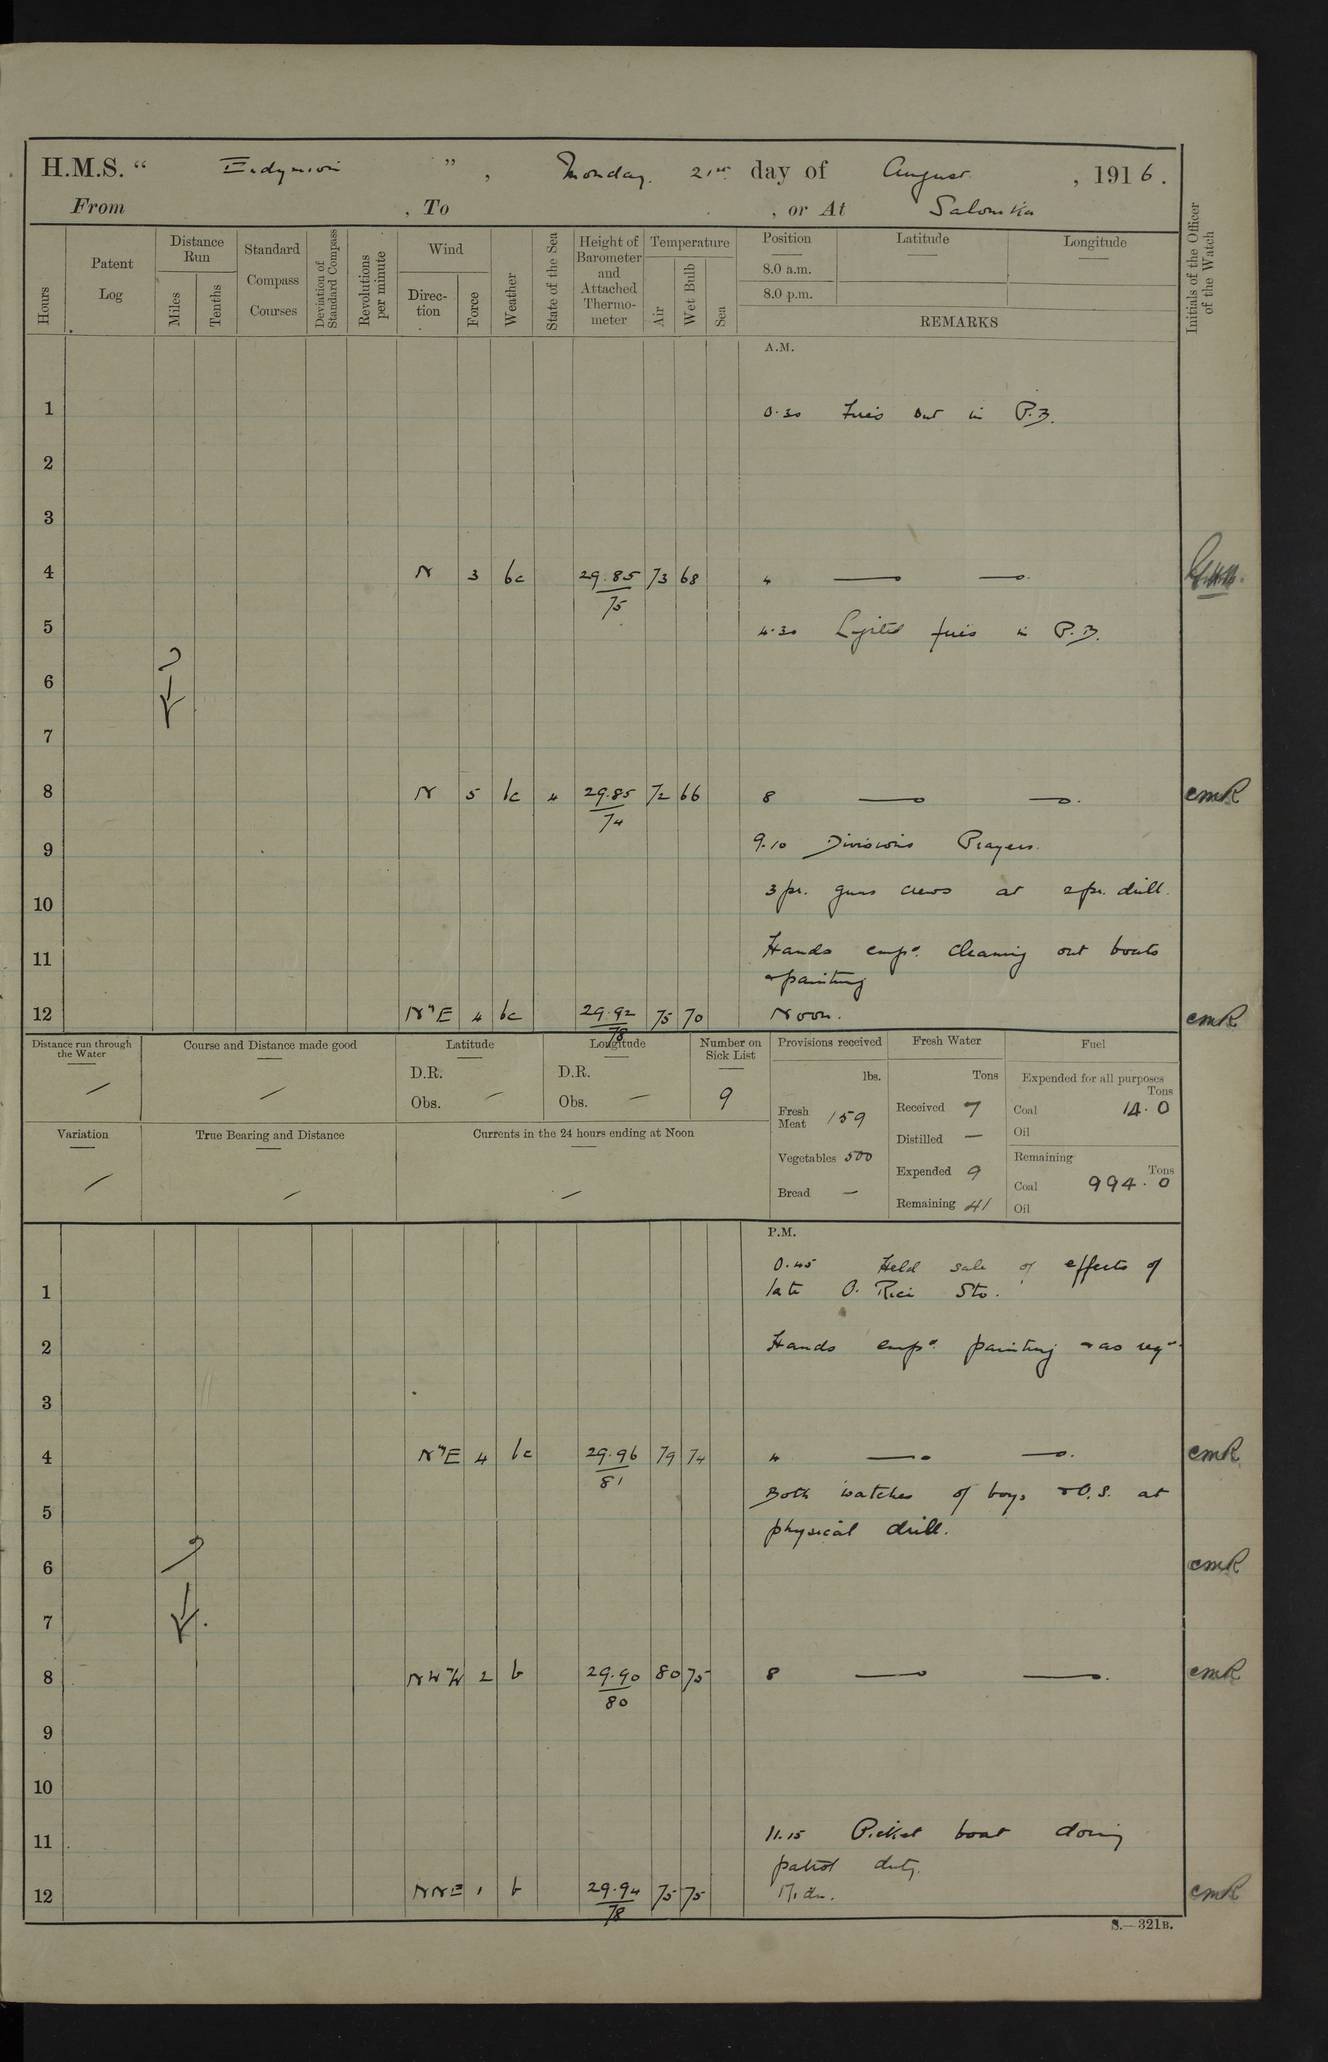 H.M.S. “ Endymion ” , Monday 21st day of August , 1916.
From , To , or At Salonika
Hours
Patent Log
Distance Run
Miles
Tenths
Standard Compass Courses
Deviation of Standard Compass
Revolutions per minute
Wind
Direc-tion
Force
Weather
State of the Sea
Height of Barometer and Attached Thermo-meter
Temperature
Air
Wet Bulb
Sea
Position
8.0 a.m.
8.0 p.m.
Latitude
Longitude
REMARKS
Initials of the Officer of the Watch
A.M.
1 0.30 Fires out in P.B.
2
3
4 N 3 bc 29.85 73 68 4 — —.
75
5 4.30 Lighted fires in P.B.
6
7
8 N 5 bc 4 29.85 72 66 8 — —. CMR
74
9 9.10 Divisions Prayers.
10 3 pr. guns crews at 2 pr. drill.
11 Hands empd. cleaning out boats
& painting
12 N"E 4 bc 29.92 75 70 Noon. CMR
78
Distance run through the Water
Course and Distance made good
Latitude
D.R.
Obs. —
Longitude
D.R.
Obs. —
Number on Sick List
9
Provisions received
lbs.
Fresh Meat 159
Vegetables 500
Bread —
Fresh Water
Tons
Received 7
Distilled —
Expended 9
Remaining 41
Fuel
Expended for all purposes
Tons
Coal 14.0
Oil
Remaining
Tons
Coal 994.0
Oil
Variation
True Bearing and Distance
Currents in the 24 hours ending at Noon
P.M.
0.45 Held sale of effects of
1 late O. Rici Sto.
2 Hands empd. painting & as reqd.
3
4 N"E 4 bc 29.96 79 74 4 — —. CMR
81
Both watches of boys & O.S. at
5 physical drill.
6 CMR
7
8 NW"W 2 b 29.90 80 75 8 — —. CMR
80
9
10
11 11.15 Picket boat doing
patrol duty.
12 NNE 1 b 29.94 75 75 Mdn. CMR
78
S.—321B.